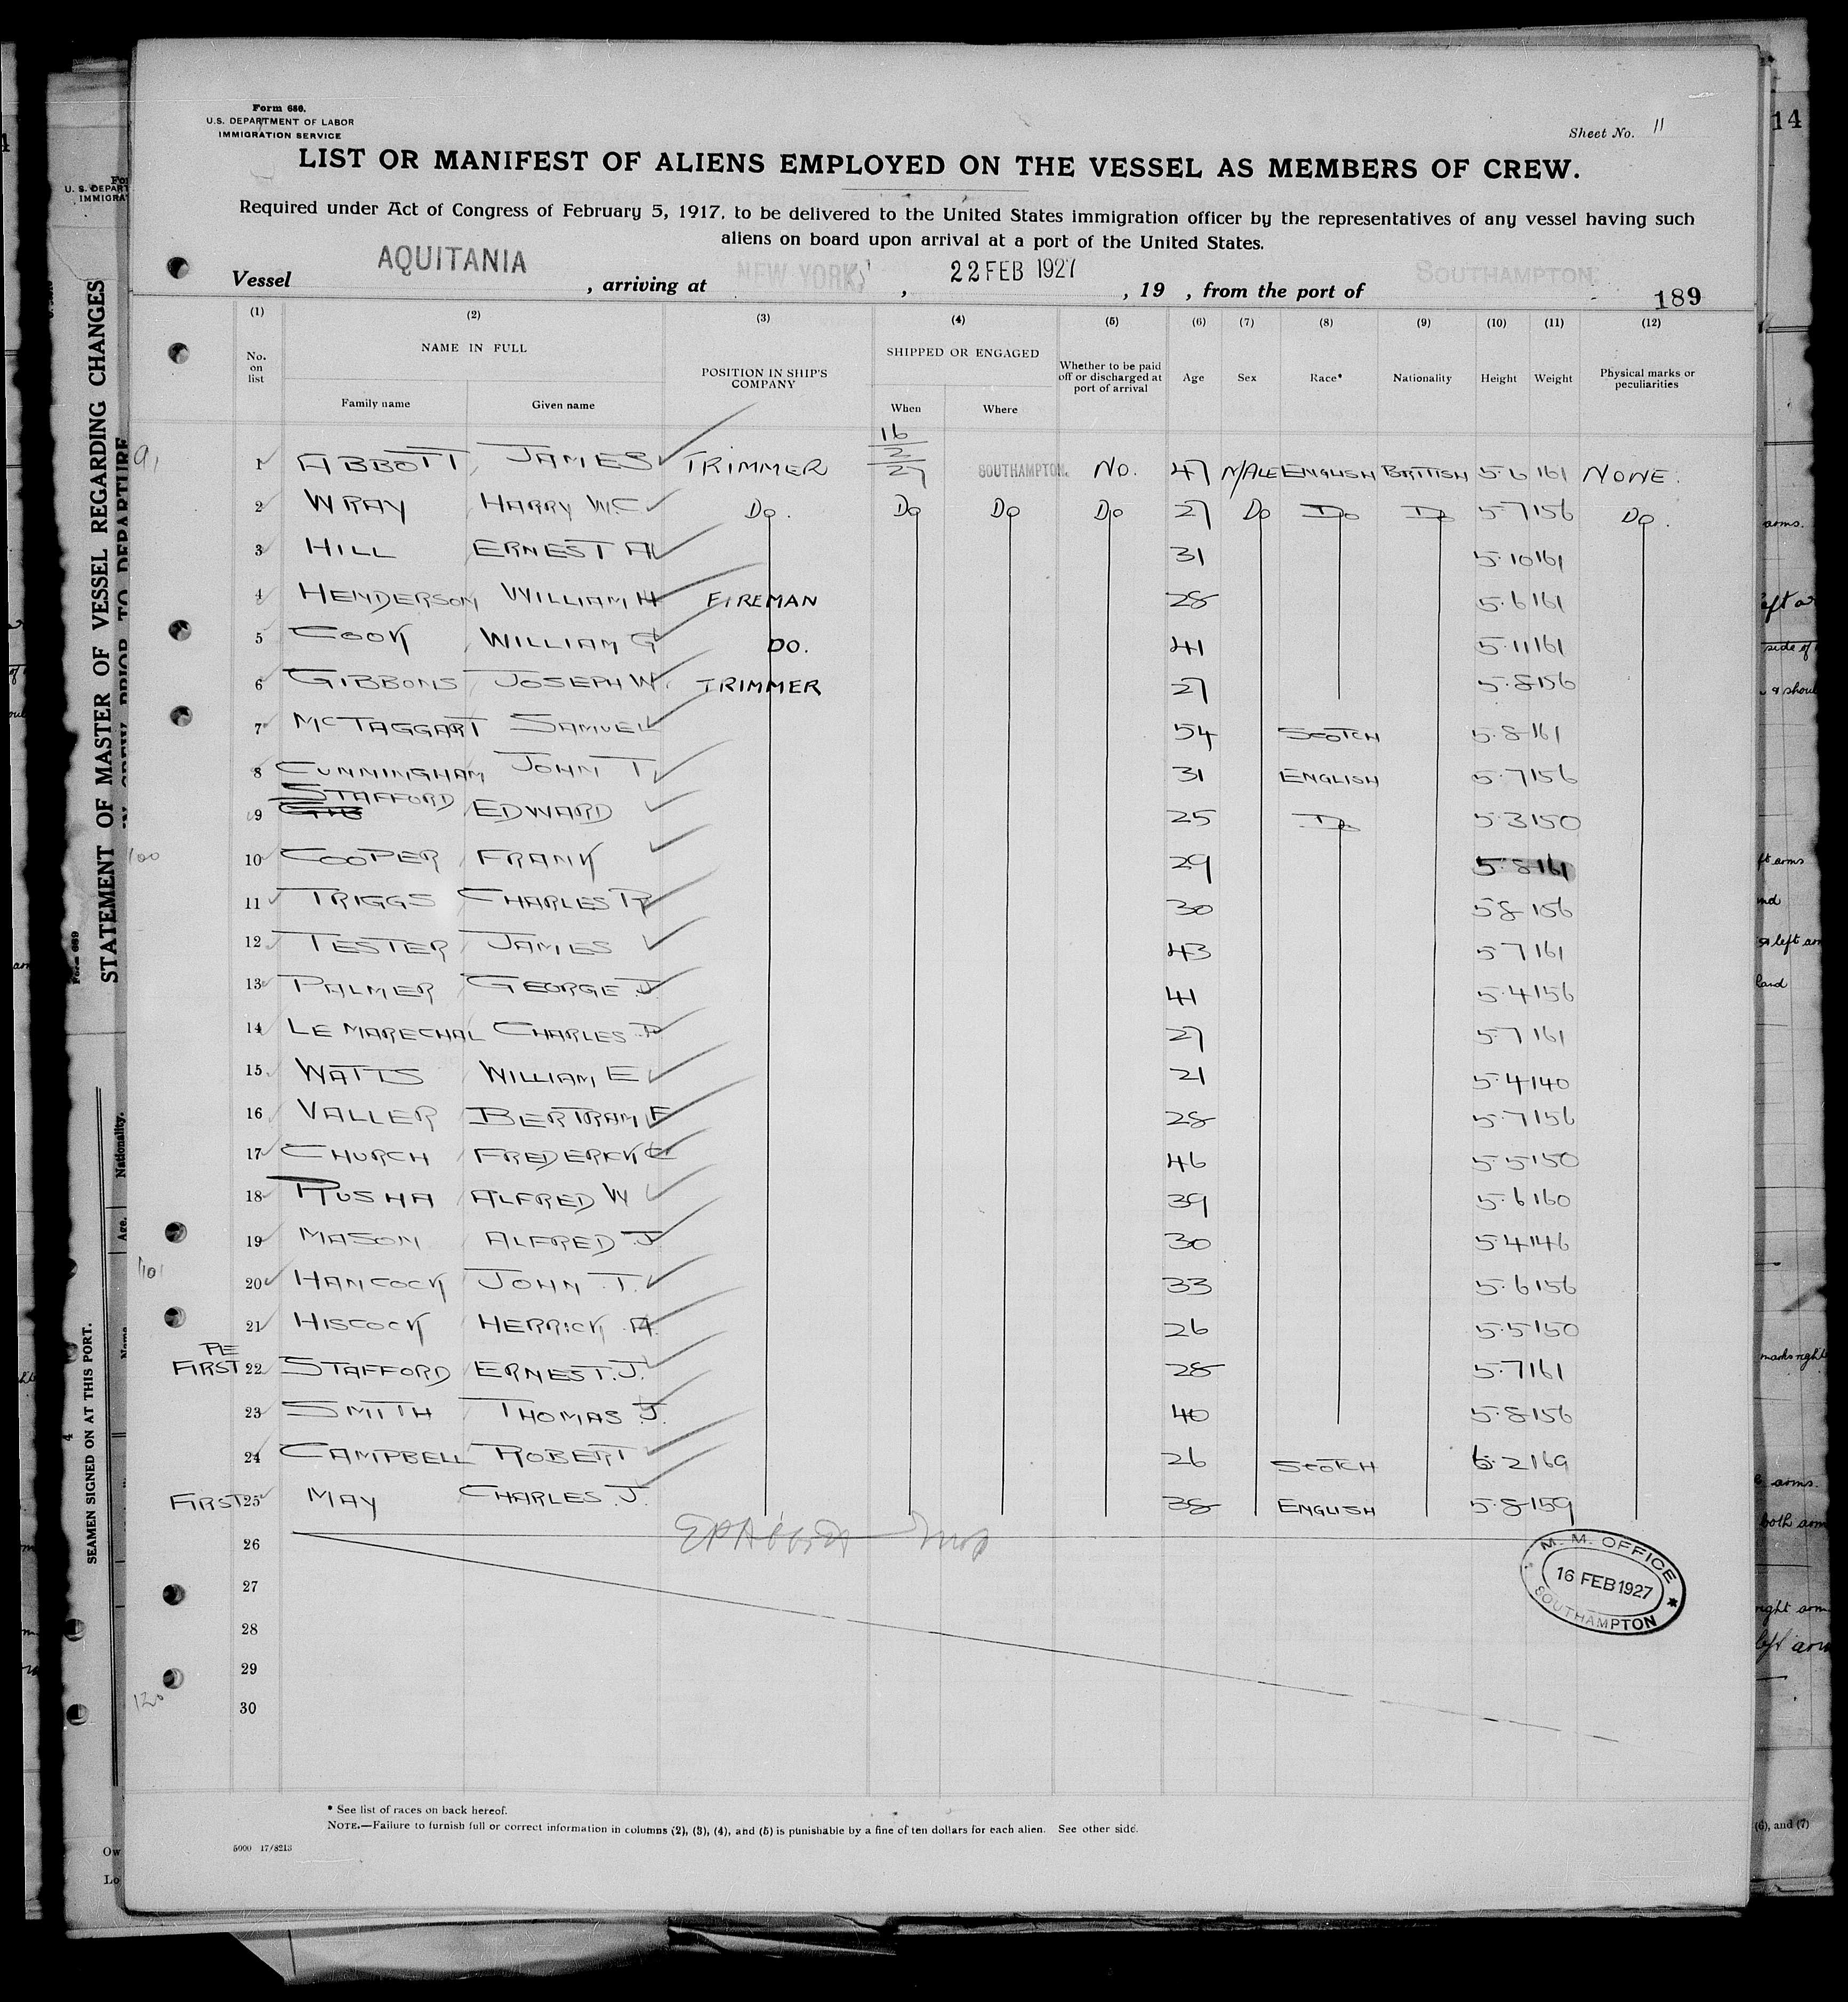 Form 680.
U.S. DEPARTMENT OF LABOR
IMMIGRATION SERVICE
Sheet No. 11
LIST OR MANIFEST OF ALIENS EMPLOYED ON THE VESSEL AS MEMBERS OF CREW.
Required under Act of Congress of February 5, 1917, to be delivered to the United States immigration officer by the representatives of any vessel having such
aliens on board upon arrival at a port of the United States.
Vessel AQUITANIA, arriving at NEW YORK, 22 FEB 1927, 19 , from the port of SOUTHAMPTON
189
(1) (2) (3) (4) (5) (6) (7) (8) (9) (10) (11) (12)
No. on list NAME IN FULL Family name Given name POSITION IN SHIP'S COMPANY SHIPPED OR ENGAGED When Where Whether to be paid off or discharged at port of arrival Age Sex Race* Nationality Height Weight Physical marks or peculiarities
1 ABBOTT, JAMES TRIMMER 16/2/27 SOUTHAMPTON. NO. 47 MALE ENGLISH BRITISH 5.6 161 NONE.
2 WRAY HARRY W.C Do. Do Do Do 27 Do Do Do 5.7 156 Do.
3 HILL ERNEST A 31 5.10 161
4 HENDERSON WILLIAM H FIREMAN 28 5.6 161
5 COOK WILLIAM G DO. 41 5.11 161
6 GIBBONS JOSEPH W. TRIMMER 27 5.8 156
7 McTAGGART SAMUEL 54 SCOTCH 5.8 161
8 CUNNINGHAM JOHN T 31 ENGLISH 5.7 156
9 STAFFORD EDWARD 25 Do 5.3 150
10 COOPER FRANK 29 5.8 161
11 TRIGGS CHARLES R 30 5.8 156
12 TESTER JAMES 43 5.7 161
13 PALMER GEORGE J. 41 5.4 156
14 LE MARECHAL CHARLES P 27 5.7 161
15 WATTS WILLIAM E 21 5.4 140
16 VALLER BERTRAM F 28 5.7 156
17 CHURCH FREDERICK C 46 5.5 150
18 RUSHA ALFRED W 39 5.6 160
19 MASON ALFRED J 30 5.4 146
20 HANCOCK JOHN T. 33 5.6 156
21 HISCOCK HERRICK A. 26 5.5 150
FIRST 22 STAFFORD ERNEST.J. 28 5.7 161
23 SMITH THOMAS J. 40 5.8 156
24 CAMPBELL ROBERT 26 SCOTCH 6.2 169
FIRST 25 MAY CHARLES J. 38 ENGLISH 5.8 159
26
27
28
29
30
M. M. OFFICE
16 FEB 1927
SOUTHAMPTON
* See list of races on back hereof.
NOTE.—Failure to furnish full or correct information in columns (2), (3), (4), and (5) is punishable by a fine of ten dollars for each alien. See other side.
5000 17/8213
91
100
101
120
14
STATEMENT OF MASTER OF VESSEL REGARDING CHANGES
IN CREW PRIOR TO DEPARTURE
Form 689
SEAMEN SIGNED ON AT THIS PORT.
Nationality.
Age.
Name
(6), and (7)